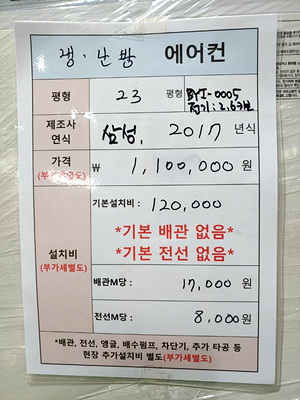 냉·난방 에어컨
평형 23 평형 BYI-0005
전기: 2.6키로
제조사 삼성, 2017 년식
연식
가격 ₩ 1,100,000 원
(부가세별도)
기본설치비 : 120,000
*기본 배관 없음*
*기본 전선 없음*
설치비
(부가세별도)
배관M당 : 17,000 원
전선M당 : 8,000 원
*배관, 전선, 앵글, 배수펌프, 차단기, 추가 타공 등
현장 추가설치비 별도(부가세별도)